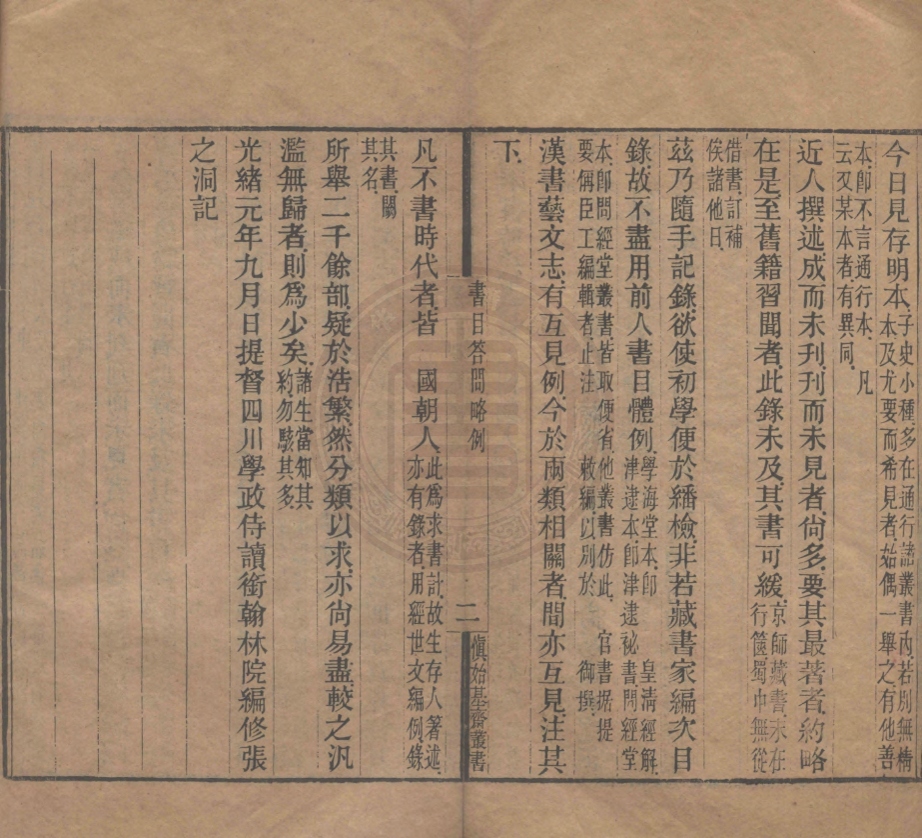 今日見存明本、子史小種、多在通行諸叢書內、若別無精
本及尤要而希見者、始偶一舉之、有他善
本、卽不言通行本、凡
云又某本者、有異同、
近人撰述、成而未刊、刊而未見者、尚多、要其最著者、約略
在是、至舊籍習聞者、此錄未及、其書可緩、京師藏書、未在
行篋、蜀中無從
借書訂補
俟諸他日、
茲乃隨手記錄、欲使初學便於繙檢、非若藏書家編次目
錄、故不盡用前人書目體例、學海堂本、卽 皇清經解、
津逮本、卽津逮祕書、問經堂
本、卽問經堂叢書、皆取便省、他叢書仿此、 官書据提
要偁臣工編輯者、止注 敕編、以別於 御撰、
漢書藝文志、有互見例、今於兩類相關者、間亦互見、注其
下、
書目答問略例 二 愼始基齋叢書
凡不書時代者、皆 國朝人、此爲求書計、故生存人著述、
亦有錄者、用經世文編例、錄
其書、闕
其名、
所舉二千餘部、疑於浩繁、然分類以求、亦尚易盡、較之汎
濫無歸者、則爲少矣、諸生當知其
約、勿駭其多、
光緒元年九月日提督四川學政侍讀銜翰林院編修張
之洞記